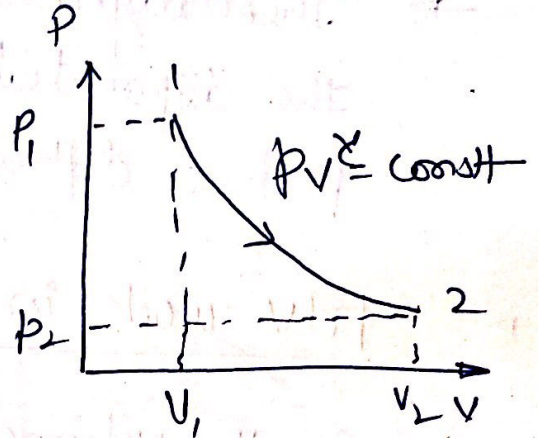 P
1
P₁
PVˠ = const
2
P₂
V₁
V₂ V